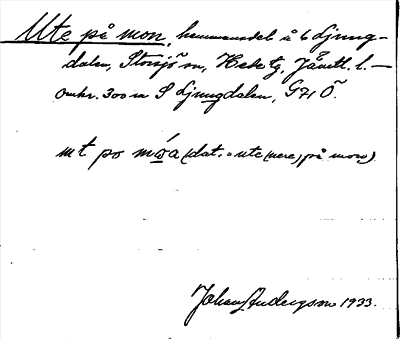 Ute på mon, hemmansdel å 6 Ljung-
dalen, Storsjö sn, Hede tg, Jämtl. l. —
Omkr. 300 m S Ljungdalen, G71 Ö.
ut po móa (dat. = ute (nere) på mon)
Johan Andersson 1933.